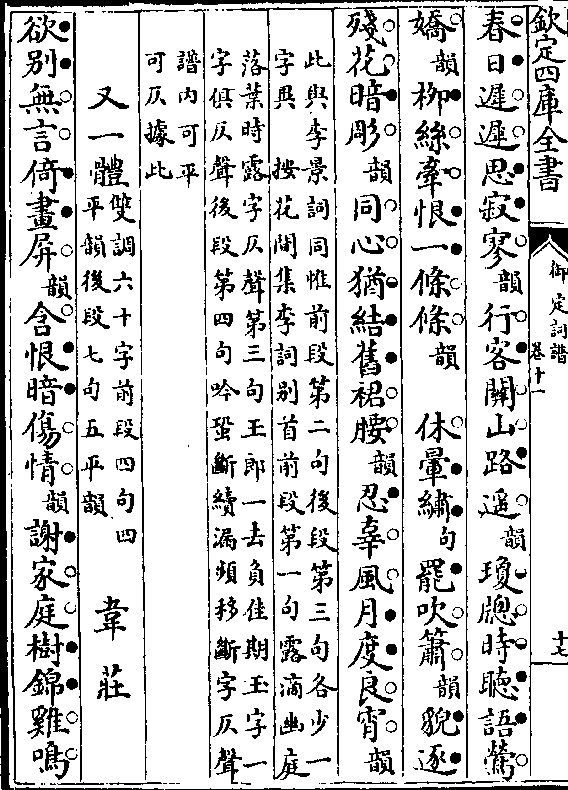 欽定四庫全書
御定詞譜
卷十一
十七
春日遲遲思寂寥韻行客關山路遥韻瓊牕時聽語鶯
嬌韻栁絲牽恨一條條韻 休暈繡句罷吹簫韻貌逐
殘花暗彫韻同心猶結舊裙腰韻忍辜風月度良宵韻
此與李景詞同惟前段第二句後段第三句各少一
字異 按花間集李詞别首前段第一句露滴幽庭
落葉時露字仄聲第三句王郎一去負佳期玉字一
字俱仄聲後段第四句吟蛩斷續漏頻移斷字仄聲
譜内可平
可仄據此
又一體雙調六十字前段四句四
平韻後段七句五平韻 韋莊
欲别無言倚畫屏韻含恨暗傷情韻謝家庭樹錦雞鳴